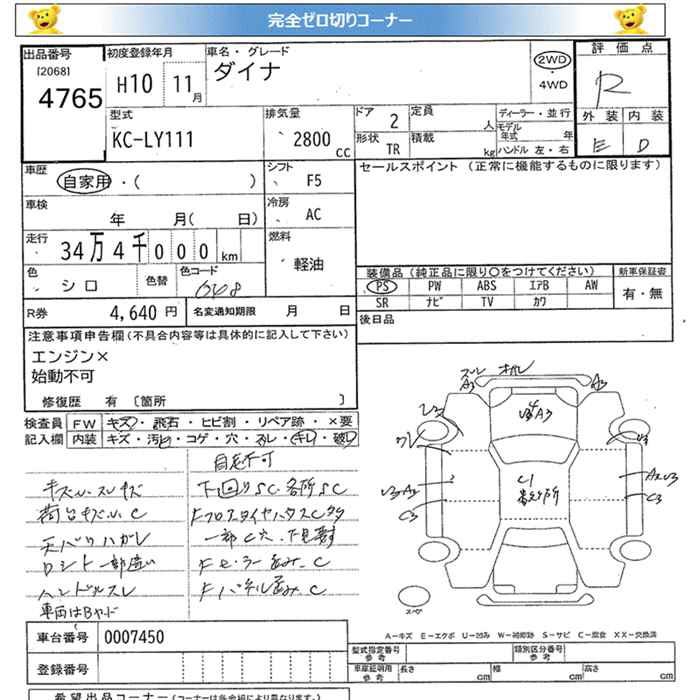 完全ゼロ切りコーナー
出品番号 初度登録年月 車名・グレード 評価点
[2068] 4765 H10 11月 ダイナ 2WD ・ 4WD R
型式 排気量 ドア 定員 ディーラー・並行 外装 内装
KC-LY111 2800 cc 2 人 モデル年式 年 E D
形状 TR 積載 kg ハンドル 左・右
車歴 シフト セールスポイント (正常に機能するものに限ります)
自家用・( ) F5
車検 冷房
年 月( 日) AC
走行 燃料
34万4千000km 軽油
色 色替 色コード 装備品(純正品に限り○をつけてください) 新車保証書
シロ 048 PS PW ABS エアB AW 有・無
SR ナビ TV カワ
R券 4,640円 名変通知期限 月 日 後日品
注意事項申告欄(不具合内容等は具体的に記入して下さい)
エンジン×
始動不可
修復歴 有 〔箇所 〕
検査員 FW キズ・飛石・ヒビ割・リペア跡・×要
記入欄 内装 キズ・汚れ・コゲ・穴・スレ・キレ・破レ
自走不可
下回りSC.各所SC
荷台キズ凹C
天バリハガレ
ハンドルスレ
車両はBヤード
車台番号 0007450
登録番号
A-キズ E-エクボ U-凹み W-補修跡 S-サビ C-腐食 XX-交換済
型式指定番号 参考 類別区分番号 参考
車庫証明用 参考 長さ cm 幅 cm 高さ cm
希望出品コーナー(コーナーは各会場により異なります。)